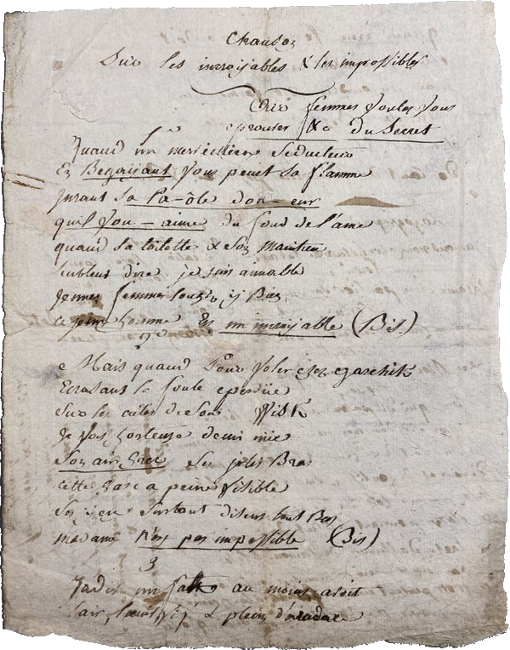 Chanson
Sur les incroyables & les impossibles
air femmes voulez vous
eprouver &c Du Secret
1
Quand un merveilleux seducteur
En Begaijant vous peint sa flamme
jurant sa Pa-ôle don-eur
quil vou-aime du fond de l'ame
quand sa toilette & son maintien
semblent dire je suis aimable
jeunes femmes songés y Bien
ce jeune homme Es un incroyable (Bis)
2
Mais quand Pour voler chez
Ecrasant la foule eperdue
Sur les de son Wisk
je vois honteuse demi nue
son air Grec Ses jolis Bras
cette Gaze a peine visible
ses yeux surtout disent tout Bas
madame N'es pas impossible (Bis)
3
Jadis un fat au moins avoit
l'air & plein d'audace